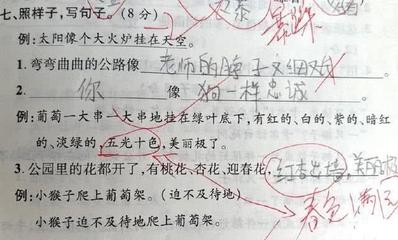 七、照样子,写句子。(8分)
例:太阳像个大火炉挂在天空。
1.弯弯曲曲的公路像老师的脖子又细又
2.你像狗一样忠诚
例:葡萄一大串一大串地挂在绿叶底下,有红的、白的、紫的、暗红
的、淡绿的,五光十色,美丽极了。
3.公园里的花都开了,有桃花、杏花、迎春花,红杏出墙,美丽极
例:小猴子爬上葡萄架。(迫不及待地) 春色满园
小猴子迫不及待地爬上葡萄架。